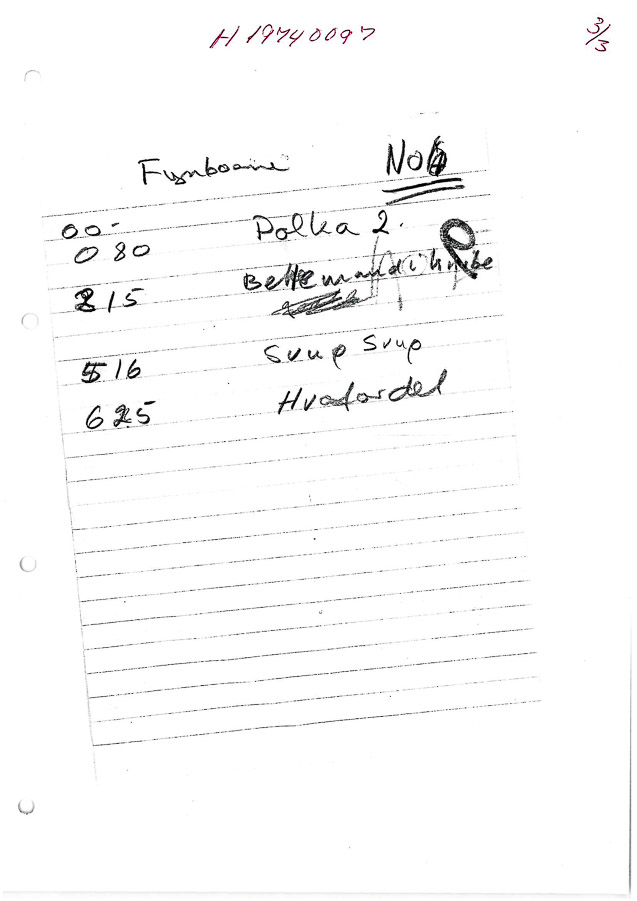 H 19740097 3/3
Fynboerne No 6
00-
080 Polka 2.
215 Bettemand i knibe
516 Svup Svup
625 Hvafordel